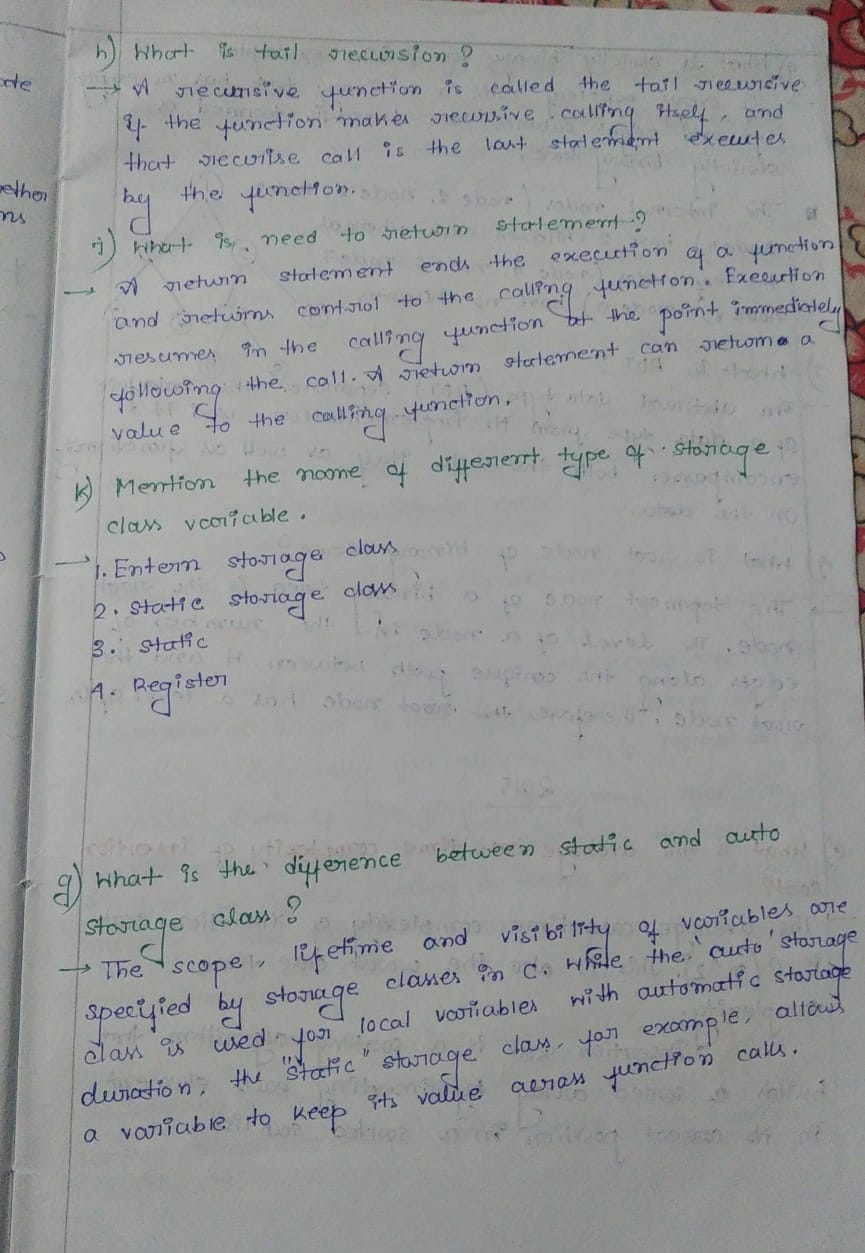 h) What is tail recursion?
ode
→ A recursive function is called the tail recursive
if the function makes recursive calling itself, and
that recursive call is the last statement executes
ether
by the function.
ns
j) What is need to return statement?
→ A return statement ends the execution of a function
and returns control to the calling function. Execution
resumes in the calling function at the point immediately
following the call. A return statement can return a
value to the calling function.
k) Mention the name of different type of storage
class variable.
→ 1. Entern storage class
2. static storage class
3. static
4. Register
g) What is the difference between static and auto
storage class?
→ The scope, lifetime and visibility of variables are
specified by storage classes in C. While the 'auto' storage
class is used for local variables with automatic storage
duration, the "static" storage class, for example, allows
a variable to keep its value across function calls.